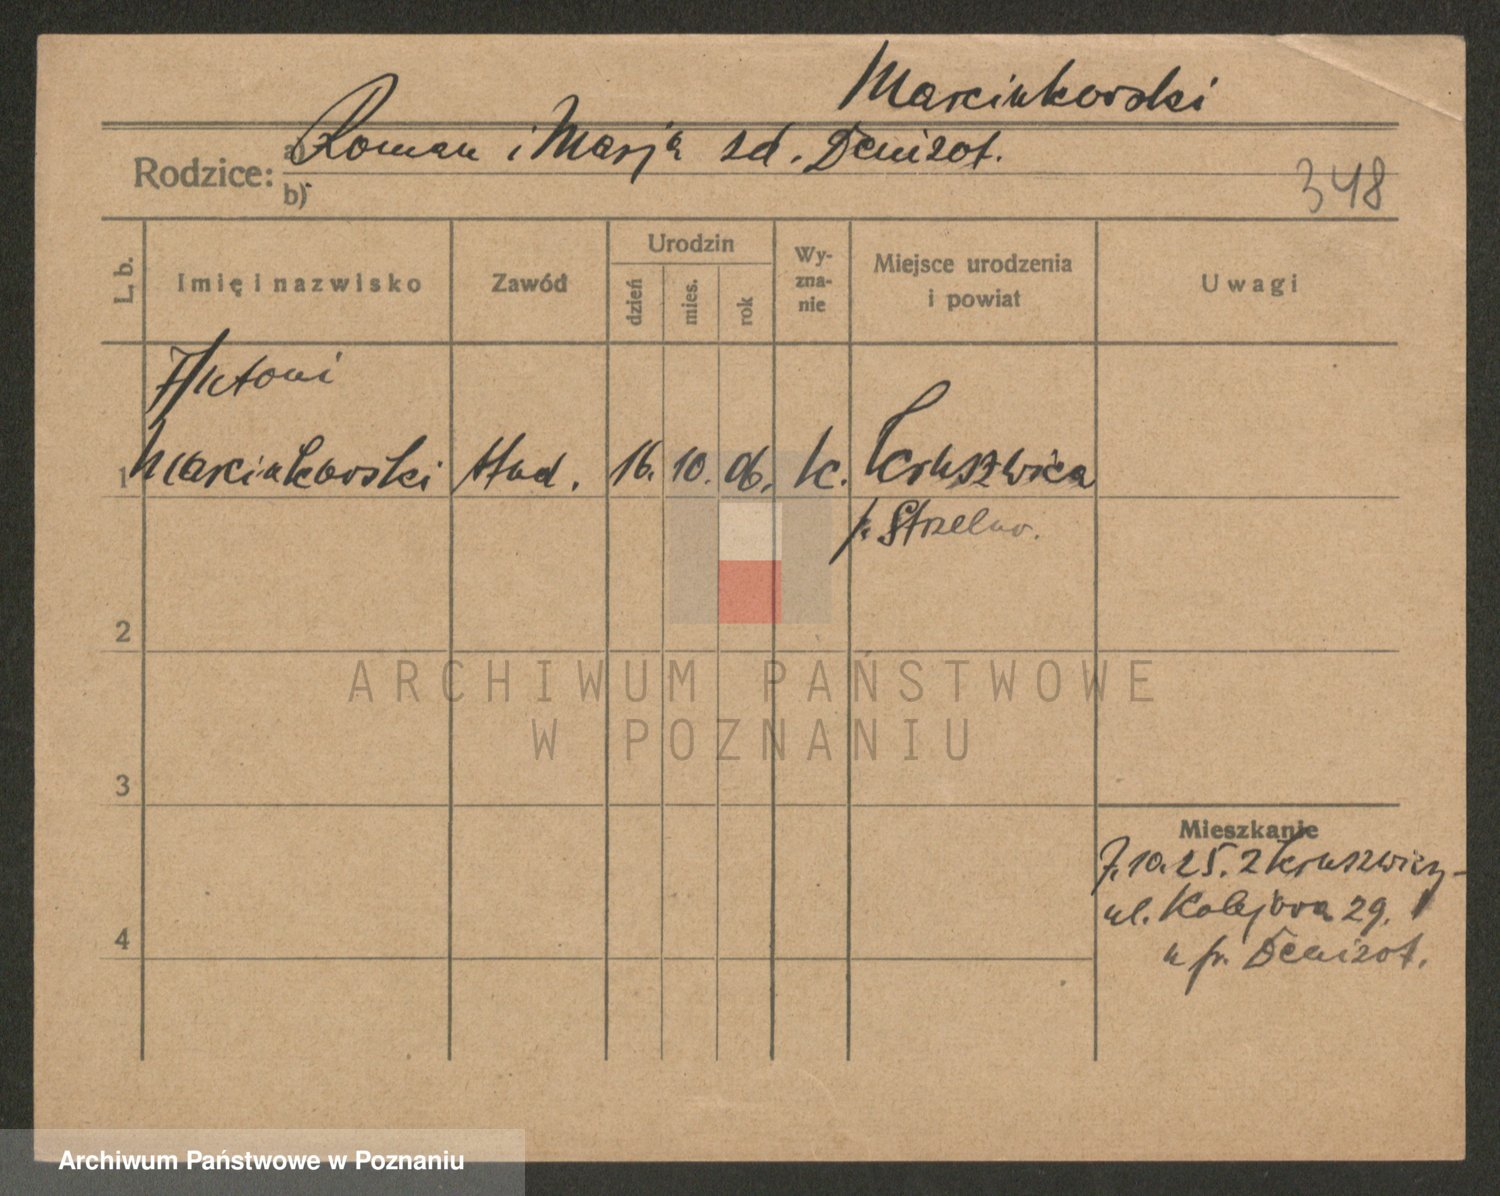 Marcinkowski
Rodzice: a) Roman i Marja zd. Denizot.
b)
348
L. b.
Imię i nazwisko
Zawód
Urodzin
dzień
mies.
rok
Wy-
zna-
nie
Miejsce urodzenia
i powiat
Uwagi
Antoni
1 Marcinkowski stud. 16. 10. 06. k. Kruszwica
p. Strzelno.
2
ARCHIWUM PAŃSTWOWE
W POZNANIU
3
Mieszkanie
7.10.25. z Kruszwicy -
ul. Kolejowa 29.
u p. Denizot.
4
Archiwum Państwowe w Poznaniu